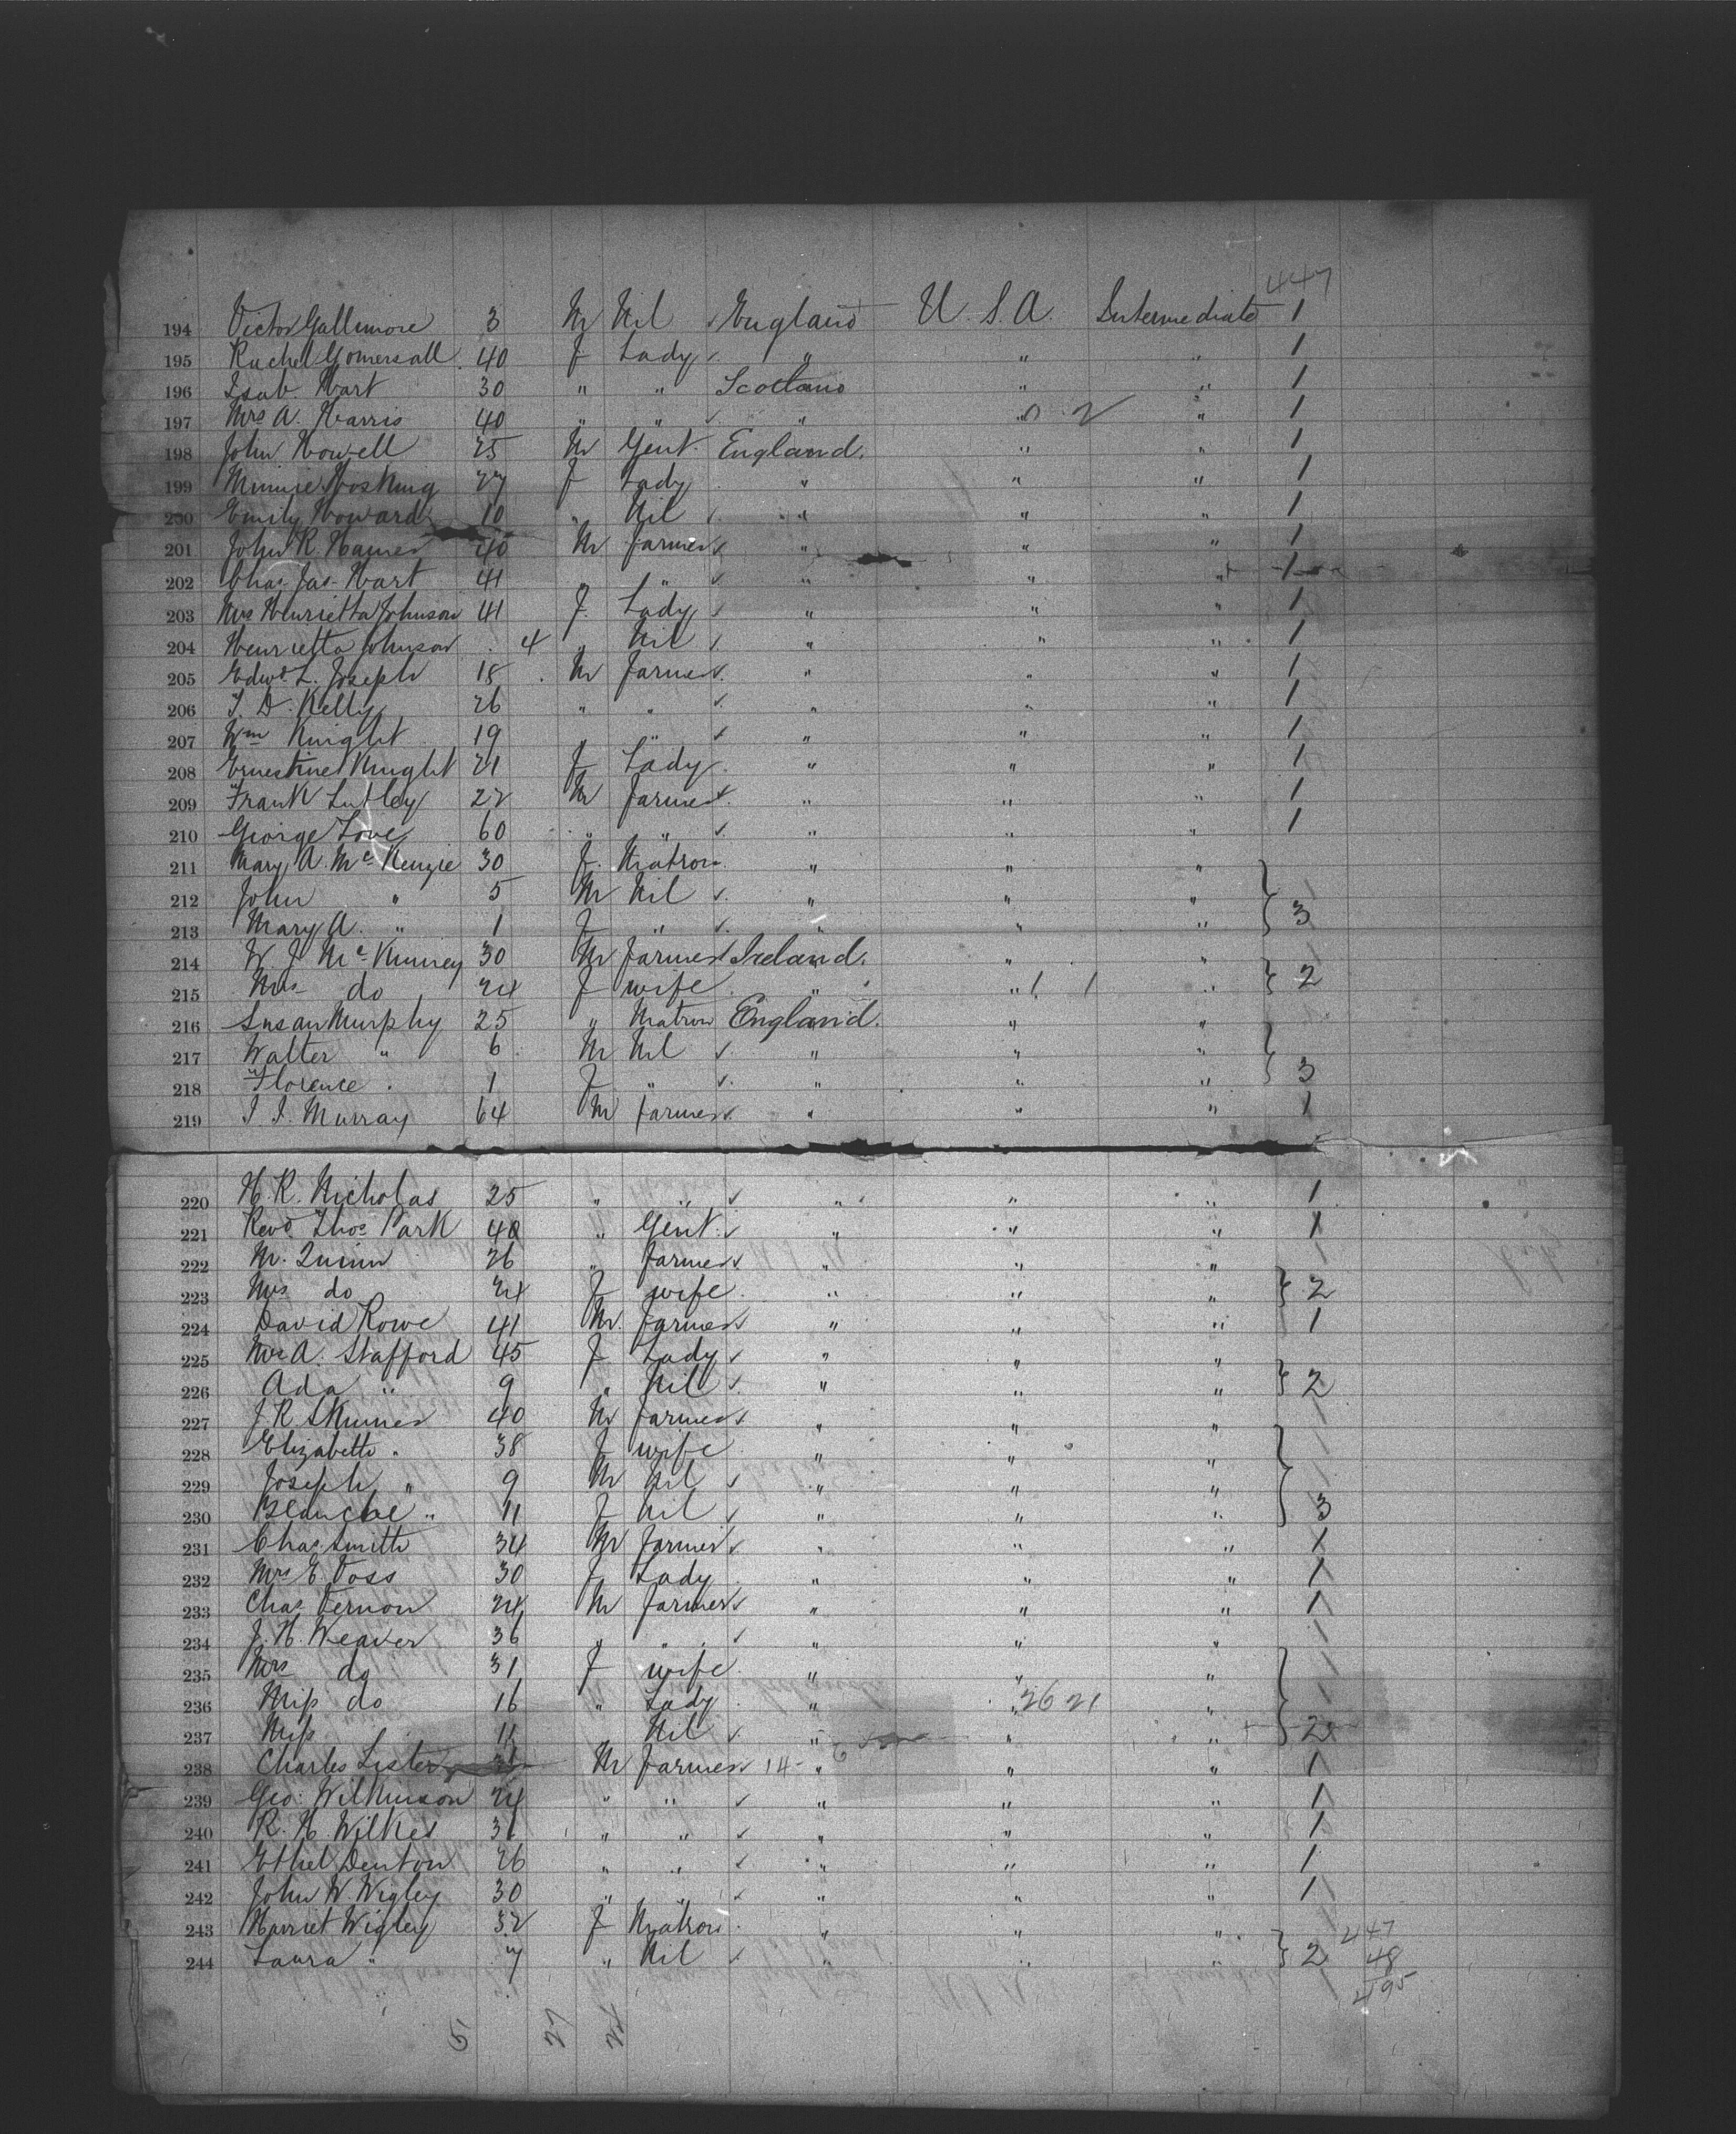 447
194 Victor Gallimore 3 M Nil England U.S.A. Intermediate 1
195 Rachel Gomersall 40 F Lady " " " 1
196 Isab. Hart 30 " " Scotland " " 1
197 Mrs A. Harris 40 " " " " 2 " 1
198 John Howell 25 M Gent. England. " " 1
199 Minnie Hosking 27 F Lady " " " 1
200 Emily Howard 10 " Nil " " " 1
201 John R. Hames 40 M Farmer " " " 1
202 Chas. Jas. Hart 41 " " " " " 1
203 Mrs Henrietta Johnson 41 F Lady " " " 1
204 Henrietta Johnson 4 " Nil " " " 1
205 Edwd. L. Joseph 18 M Farmer " " " 1
206 T. D. Kelly 26 " " " " " 1
207 Wm Knight 19 " " " " " 1
208 Ernestine Knight 21 F Lady " " " 1
209 Frank Lutley 22 M Farmer " " " 1
210 George Love 60 " " " " " 1
211 Mary A. McKenzie 30 F. Matron " " "
212 John " 5 M Nil " " "
213 Mary A. " 1 F " " " " 3
214 W J McKinney 30 M Farmer Ireland. " "
215 Mrs do 24 F wife " " 1 1 " 2
216 Susan Murphy 25 " Matron England. " "
217 Walter " 6 M Nil " " "
218 Florence " 1 F " " " " 3
219 J. J. Murray 64 M Farmer " " " 1
220 H. R. Nicholas 25 " " " " " 1
221 Revd. Thos. Park 40 " Gent. " " " 1
222 M. Quinn 26 " Farmer " " "
223 Mrs do 24 F wife " " " 2
224 David Rowe 41 M. Farmer " " " 1
225 Mrs A. Stafford 45 F Lady " " "
226 Ada " 9 " Nil " " " 2
227 J. R. Skinner 40 M Farmer " " "
228 Elizabeth " 38 F wife " " "
229 Joseph " 9 M Nil " " "
230 Blanche " 11 F Nil " " " 3
231 Chas. Smith 34 M Farmer " " " 1
232 Mrs E. Voss 30 F Lady " " " 1
233 Chas. Vernon 24 M Farmer " " " 1
234 J. H. Weaver 36 " " " " "
235 Mrs do 31 F wife " " "
236 Miss do 16 " Lady " " 26 21 "
237 Miss 11 Nil " " " 2
238 Charles Lister M Farmer 14 " " " 1
239 Geo. Wilkinson 24 " " " " " 1
240 R. H. Wilkes 31 " " " " " 1
241 Ethel Denton 26 " " " " " 1
242 John W. Wigley 30 " " " " " 1
243 Harriet Wigley 32 F Matron " " " 447
244 Laura " 7 " Nil " " " 2 48
495
5 27 24